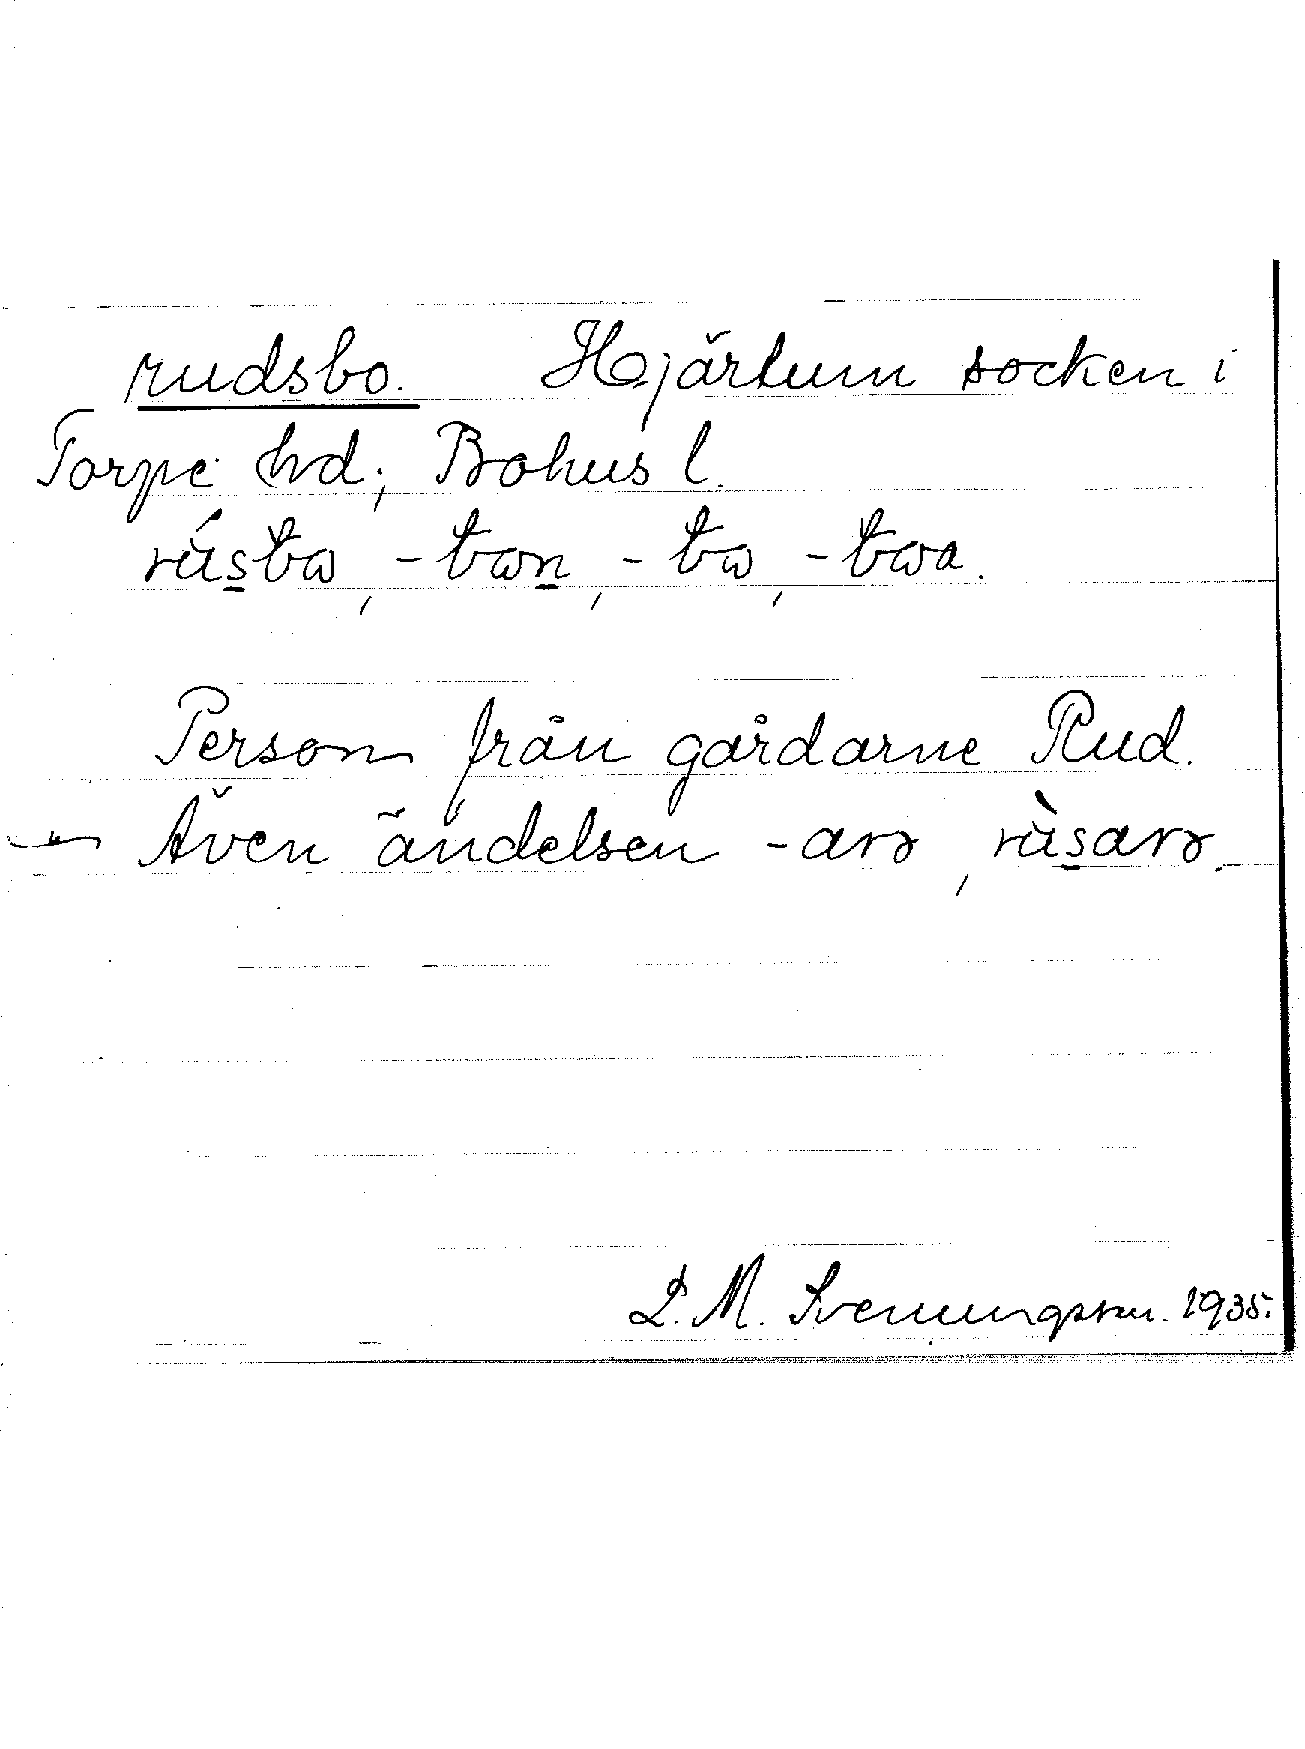 rudsbo. Hjärtum socken i
Torpe hd; Bohus l.
rúsbω, -bωn, -bω, -bωa.
Person från gårdarne Rud.
Även ändelsen -arə, rùsarə.
L. M. Svenungsson. 1935.